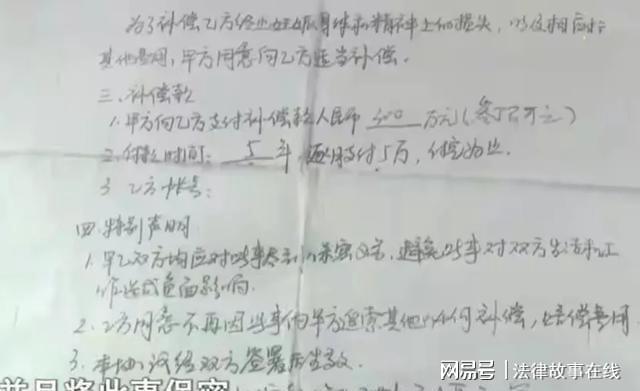 为了补偿乙方终止妊娠身体和精神上的损失，以及相应的
其他费用，甲方同意向乙方适当补偿。
三、补偿款
1.甲方向乙方支付补偿款人民币 300 万元（叁佰万元）
2.付款时间： 5 年 每月支付5万，付完为止。
3 乙方帐号：
四.特别声明
1.甲乙双方均应对此事尽到保密义务，避免此事对双方生活和工
作造成负面影响.
2.乙方同意不再因此事向甲方追索其他任何补偿，赔偿费用
3.本协议经双方签署后生效.
并且将此事保密
网易号 | 法律故事在线